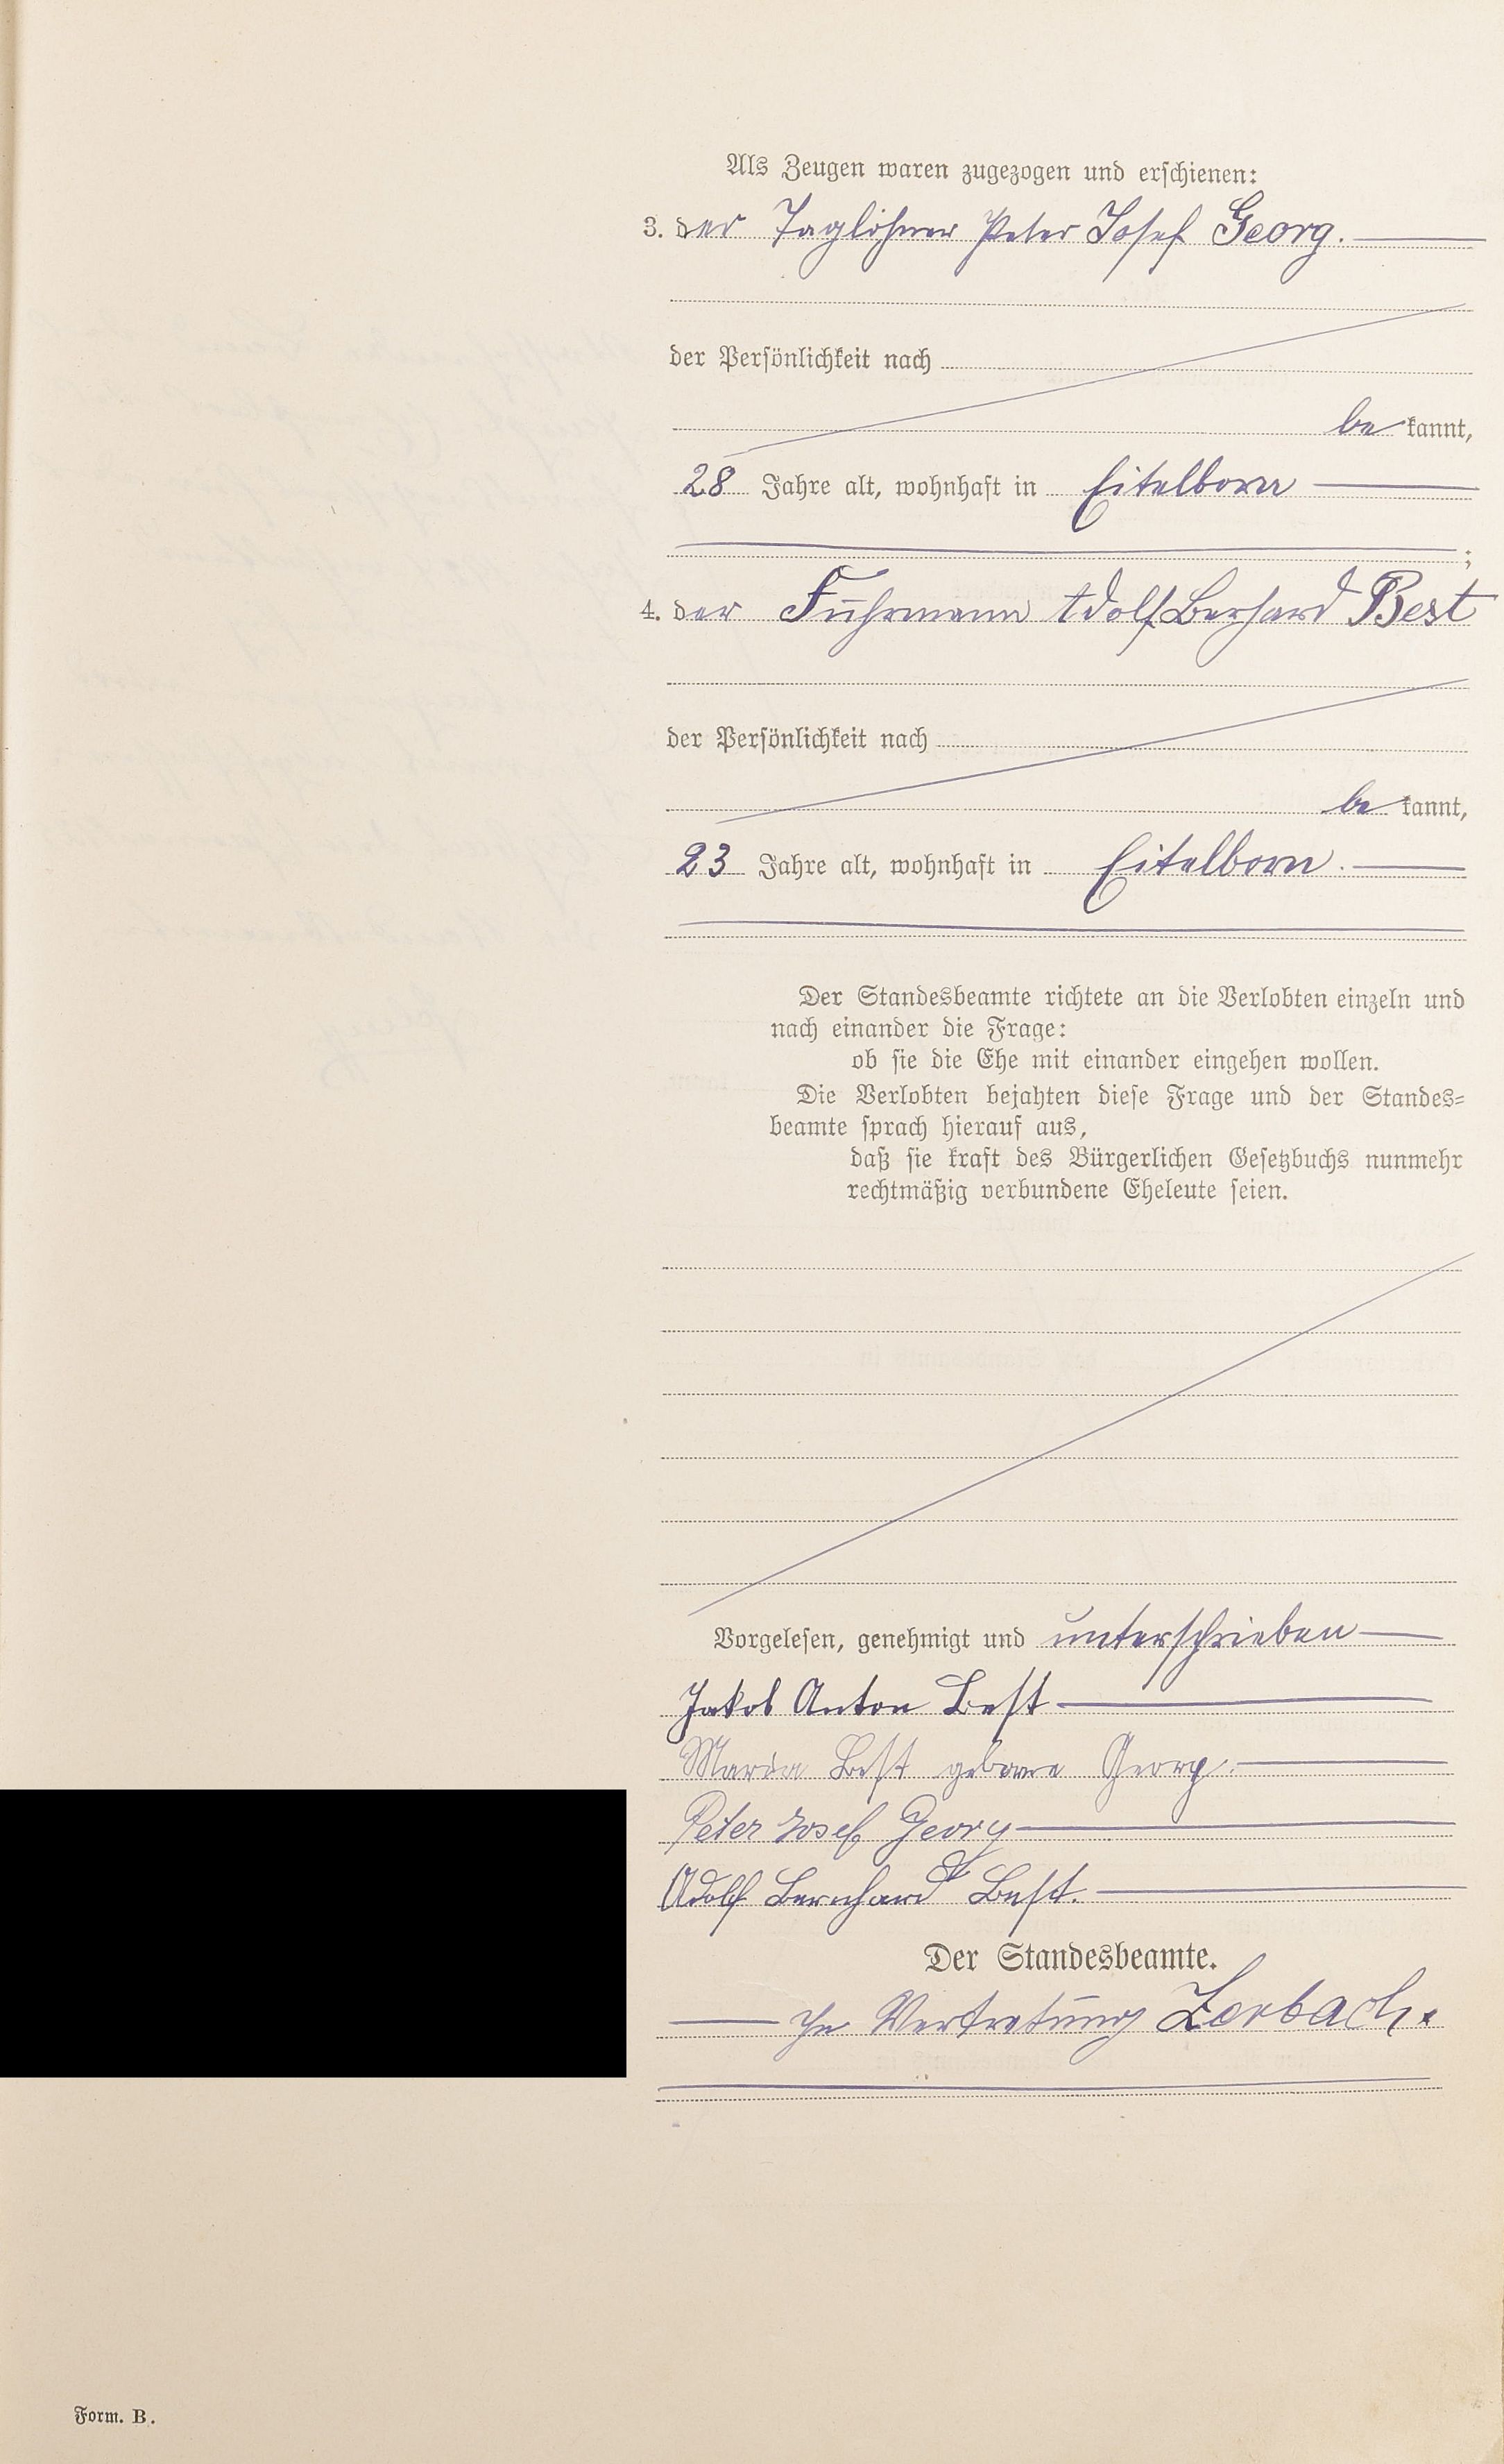 Als Zeugen waren zugezogen und erschienen:
3. der Taglöhner Peter Josef Georg.
der Persönlichkeit nach
be kannt,
28 Jahre alt, wohnhaft in Eitelborn
;
4. der Fuhrmann Adolf Berhard Best
der Persönlichkeit nach
be kannt,
23 Jahre alt, wohnhaft in Eitelborn.
Der Standesbeamte richtete an die Verlobten einzeln und
nach einander die Frage:
ob sie die Ehe mit einander eingehen wollen.
Die Verlobten bejahten diese Frage und der Standes=
beamte sprach hierauf aus,
daß sie kraft des Bürgerlichen Gesetzbuchs nunmehr
rechtmäßig verbundene Eheleute seien.
Vorgelesen, genehmigt und unterschrieben
Jakob Anton Best
Maria Best geborne Georg.
Peter Josef Georg
Adolf Bernhard Best.
Der Standesbeamte.
In Vertretung Zerbach.
Form. B.